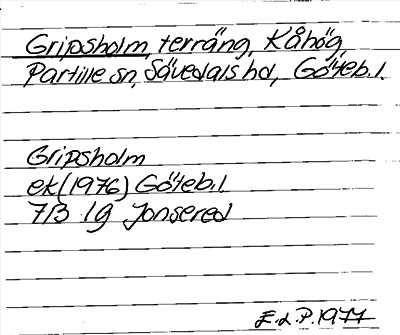 Gripsholm, terräng, Kåhög,
Partille sn, Sävedals hd, Göteb.l.
Gripsholm
ek (1976) Göteb.l
7B 1g Jonsered
E.d.P. 1977